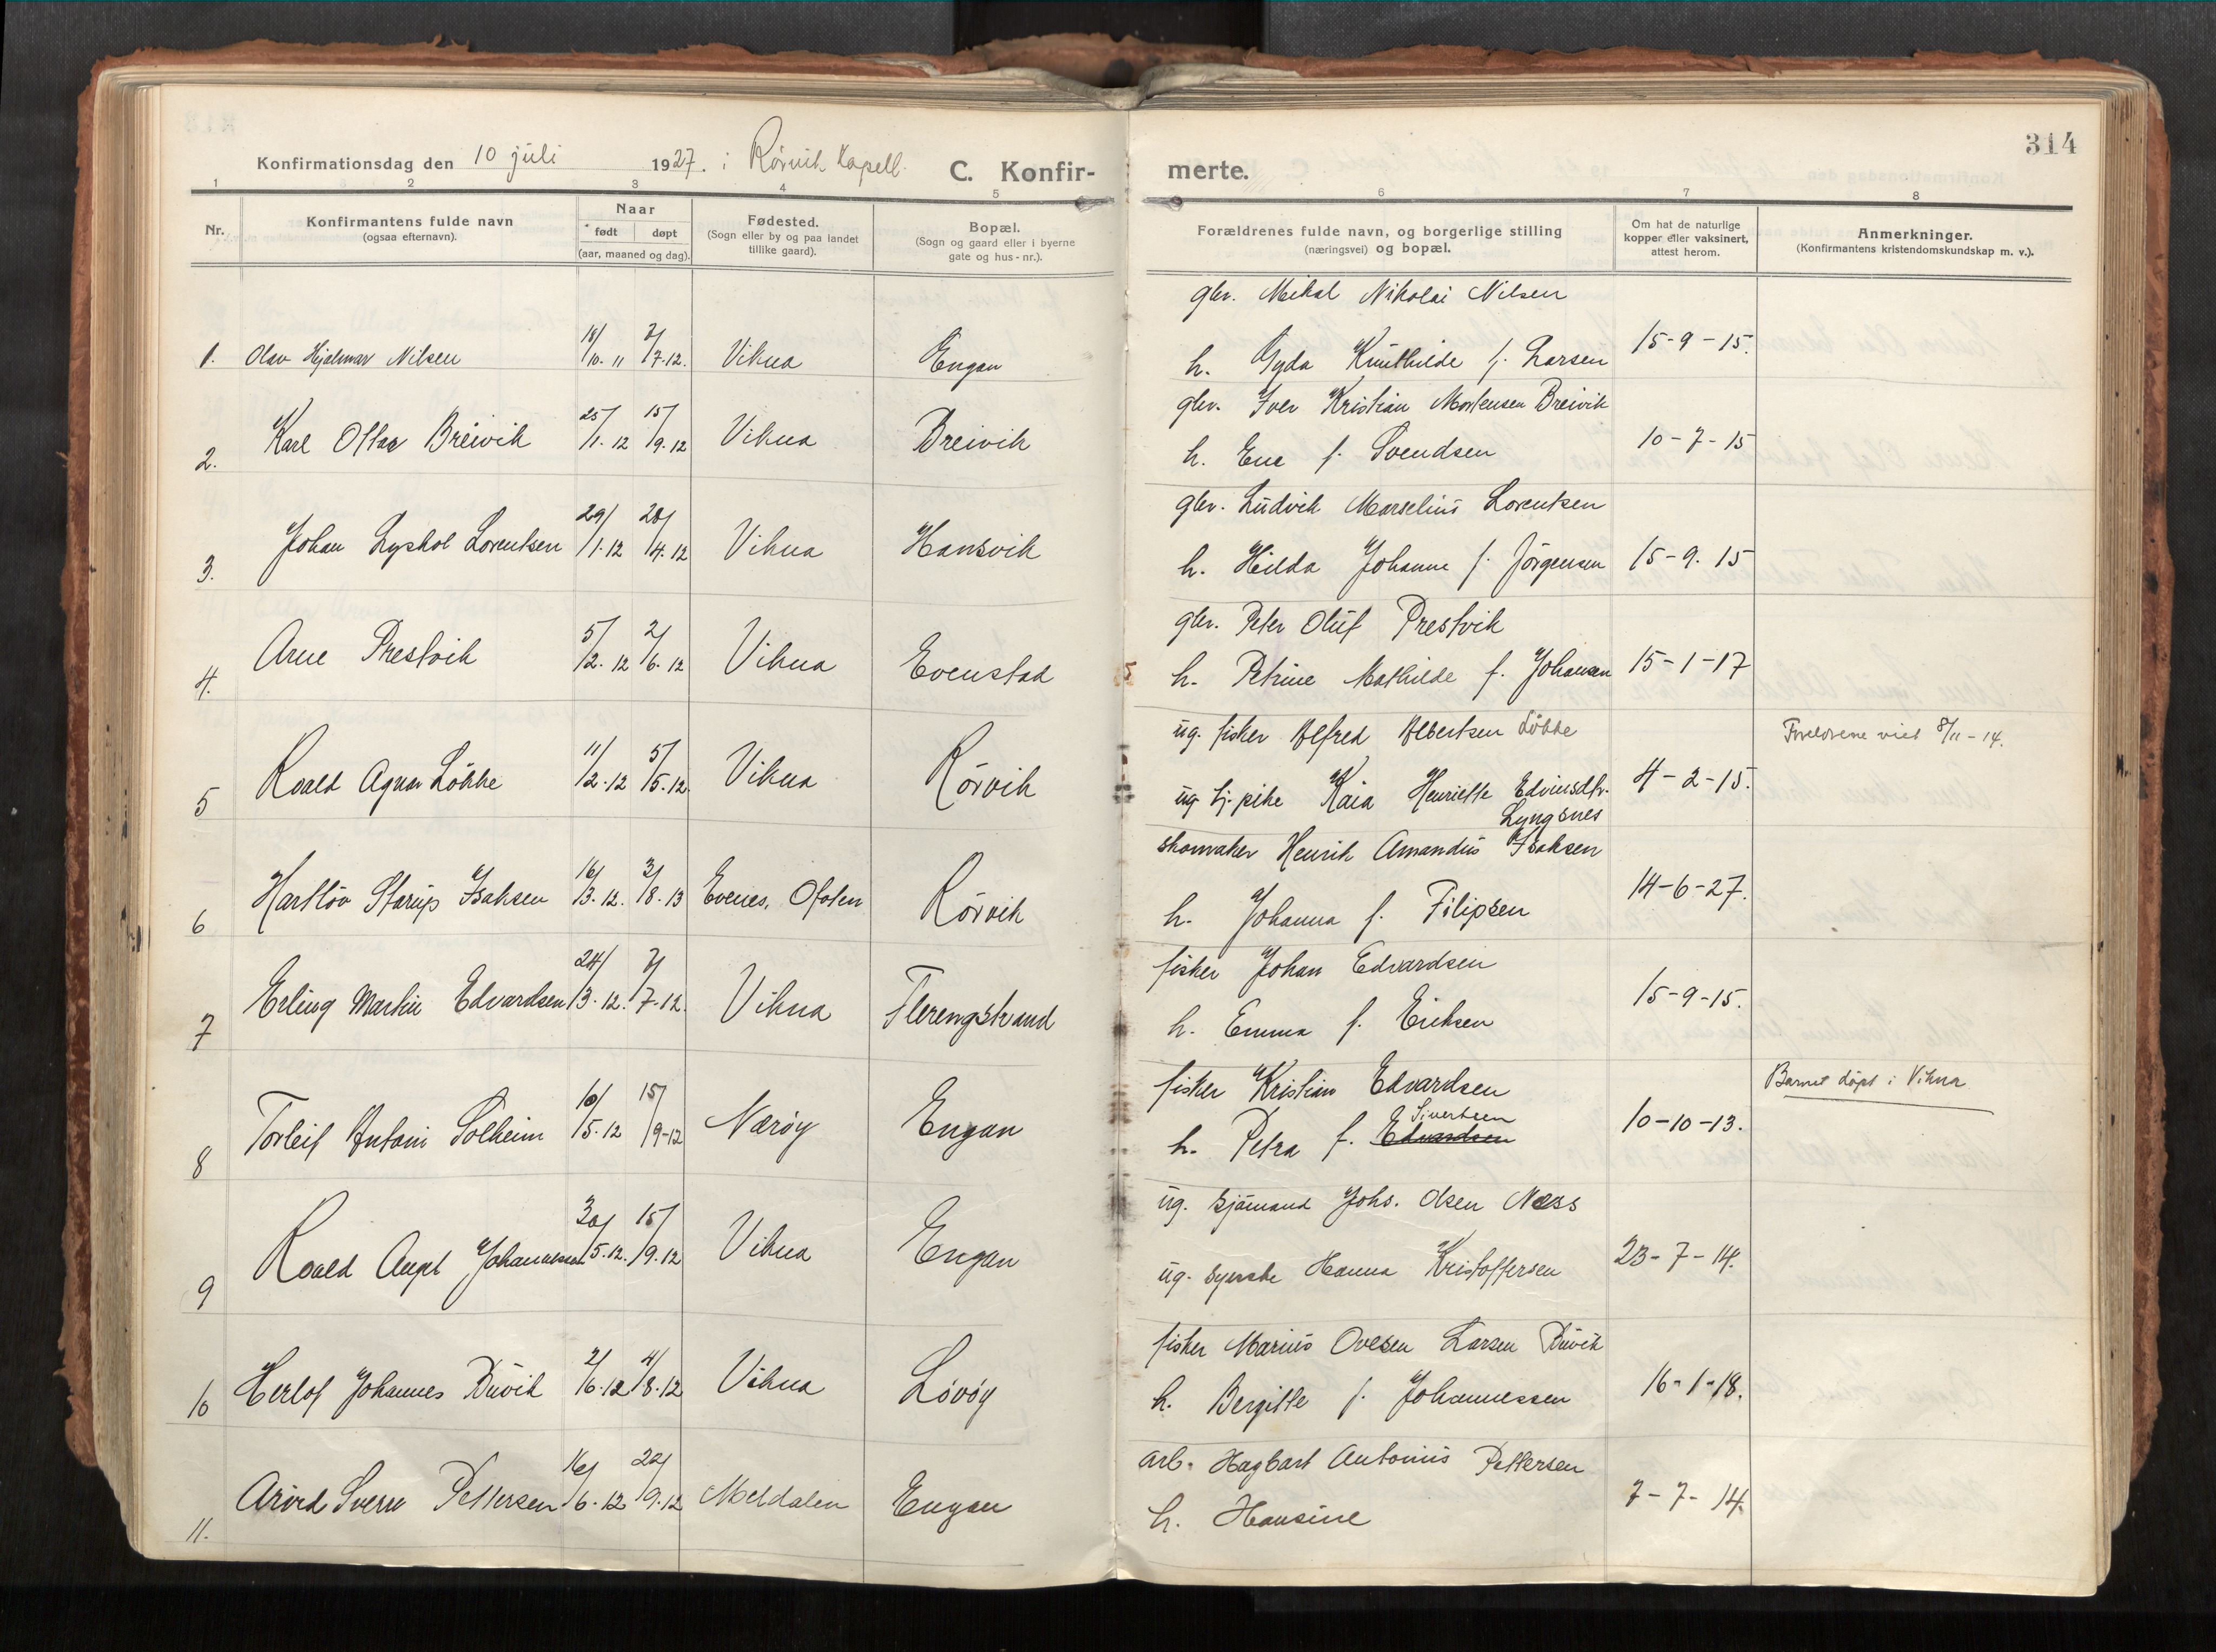 314
Konfirmationsdag den 10 juli 1927. i Rörvik Kapell. C. Konfir- merte.
1 2 3 4 5 6 7 8
Nr. Konfirmantens fulde navn (ogsaa efternavn). Naar født døpt (aar, maaned og dag). Fødested. (Sogn eller by og paa landet tillike gaard). Bopæl. (Sogn og gaard eller i byerne gate og hus-nr.). Forældrenes fulde navn, og borgerlige stilling (næringsvei) og bopæl. Om hat de naturlige kopper eller vaksinert, attest herom. Anmerkninger. (Konfirmantens kristendomskundskap m. v.).
gbr. Mikal Nikolai Nilsen
1. Olav Hjalmar Nilsen 18/10. 11 7/7.12. Vikna Engan h. Gyda Knuthilde f. Larsen 15-9-15.
gbr. Iver Kristian Mortensen Breivik
2. Karl Ottar Breivik 25/1. 12 15/9.12 Vikna Breivik h. Ene f. Svendsen 10-7-15
gbr. Ludvik Marselius Lorentsen
3. Johan Lyshol Lorentsen 29/1.12 28/4.12 Vikna Hansvik h. Hilda Johanne f. Jörgensen 15-9.15
gbr. Peter Oluf Prestvik
4. Arne Prestvik 5/2. 12 2/6. 12 Vikna Evenstad h. Petrine Mathilde f. Johansen 15-1-17
ug. fisker Alfred Albertsen Lökke Foreldrene viet 8/11-14.
5 Roald Agnar Lökke 11/2.12 5/5.12. Vikna Rörvik ug. tj. pike Kaia Henriette Edvinsdtr. 4-2-15.
Lyngsnes
skomaker Henrik Amandus Isaksen
6 Hartlöv Starup Isaksen 16/3.12. 3/8.13 Evenes, Ofoten Rörvik h. Johanna f. Filipsen 14-6-27.
fisker Johan Edvardsen
7 Erling Martin Edvardsen 24/3.12. 7/7.12. Vikna Flerengstrand h. Emma f. Eriksen 15-9-15.
fisker Kristian Edvardsen Barnet döpt i Vikna
Sivertsen
8 Torleif Antoni Solheim 10/5.12 15/9-12 Næröy Engan h. Petra f. Edvardsen 10-10-13.
ug. sjömand Johs. Olsen Næss
9 Roald Aupt Johannessen 30/5.12. 15/9.12 Vikna Engan ug. syerske Hanna Kristoffersen 23-7-14.
fisker Marius Ovesen Larsen Buvik
10 Herlof Johannes Buvik 2/6.12 4/8.12 Vikna Lövöy h. Bergitte f. Johannessen 16-1-18.
arb. Hagbart Antonius Pettersen
11. Arvid Sverre Pettersen 16/6.12 22/9.12 Meldalen Engan h. Hansine 7-7-14.